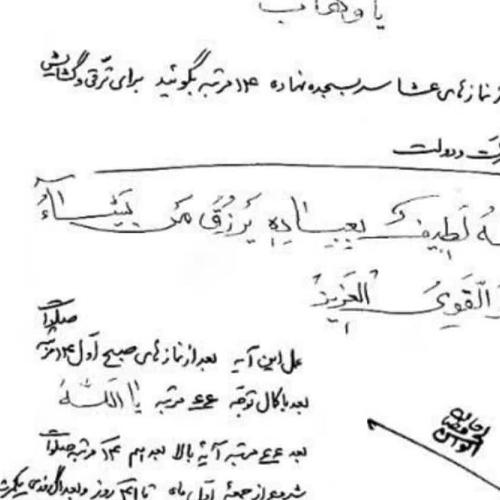 یا وهاب
نمازهای عشا سر بسجده نهاده ۱۴ مرتبه بگوئید برای ترقی و گشایش
ودولت
لَطِیفٌ بِعِبادِهِ یَرْزُقُ مَنْ یَشاءُ
الْقَوِیُ الْعَزِیزُ
صلوات
عمل این آیه بعد از نمازهای صبح اول ۱۴ مرتبه
بعد باکمال توجه ۶۶ مرتبه یا اَللّٰهُ
بعد ۶۶ مرتبه آیهٔ بالا بعد هم ۱۴ مرتبه صلوات
شروع از جمعهٔ اول ماه تا ۴۱ روز و بعد اگر